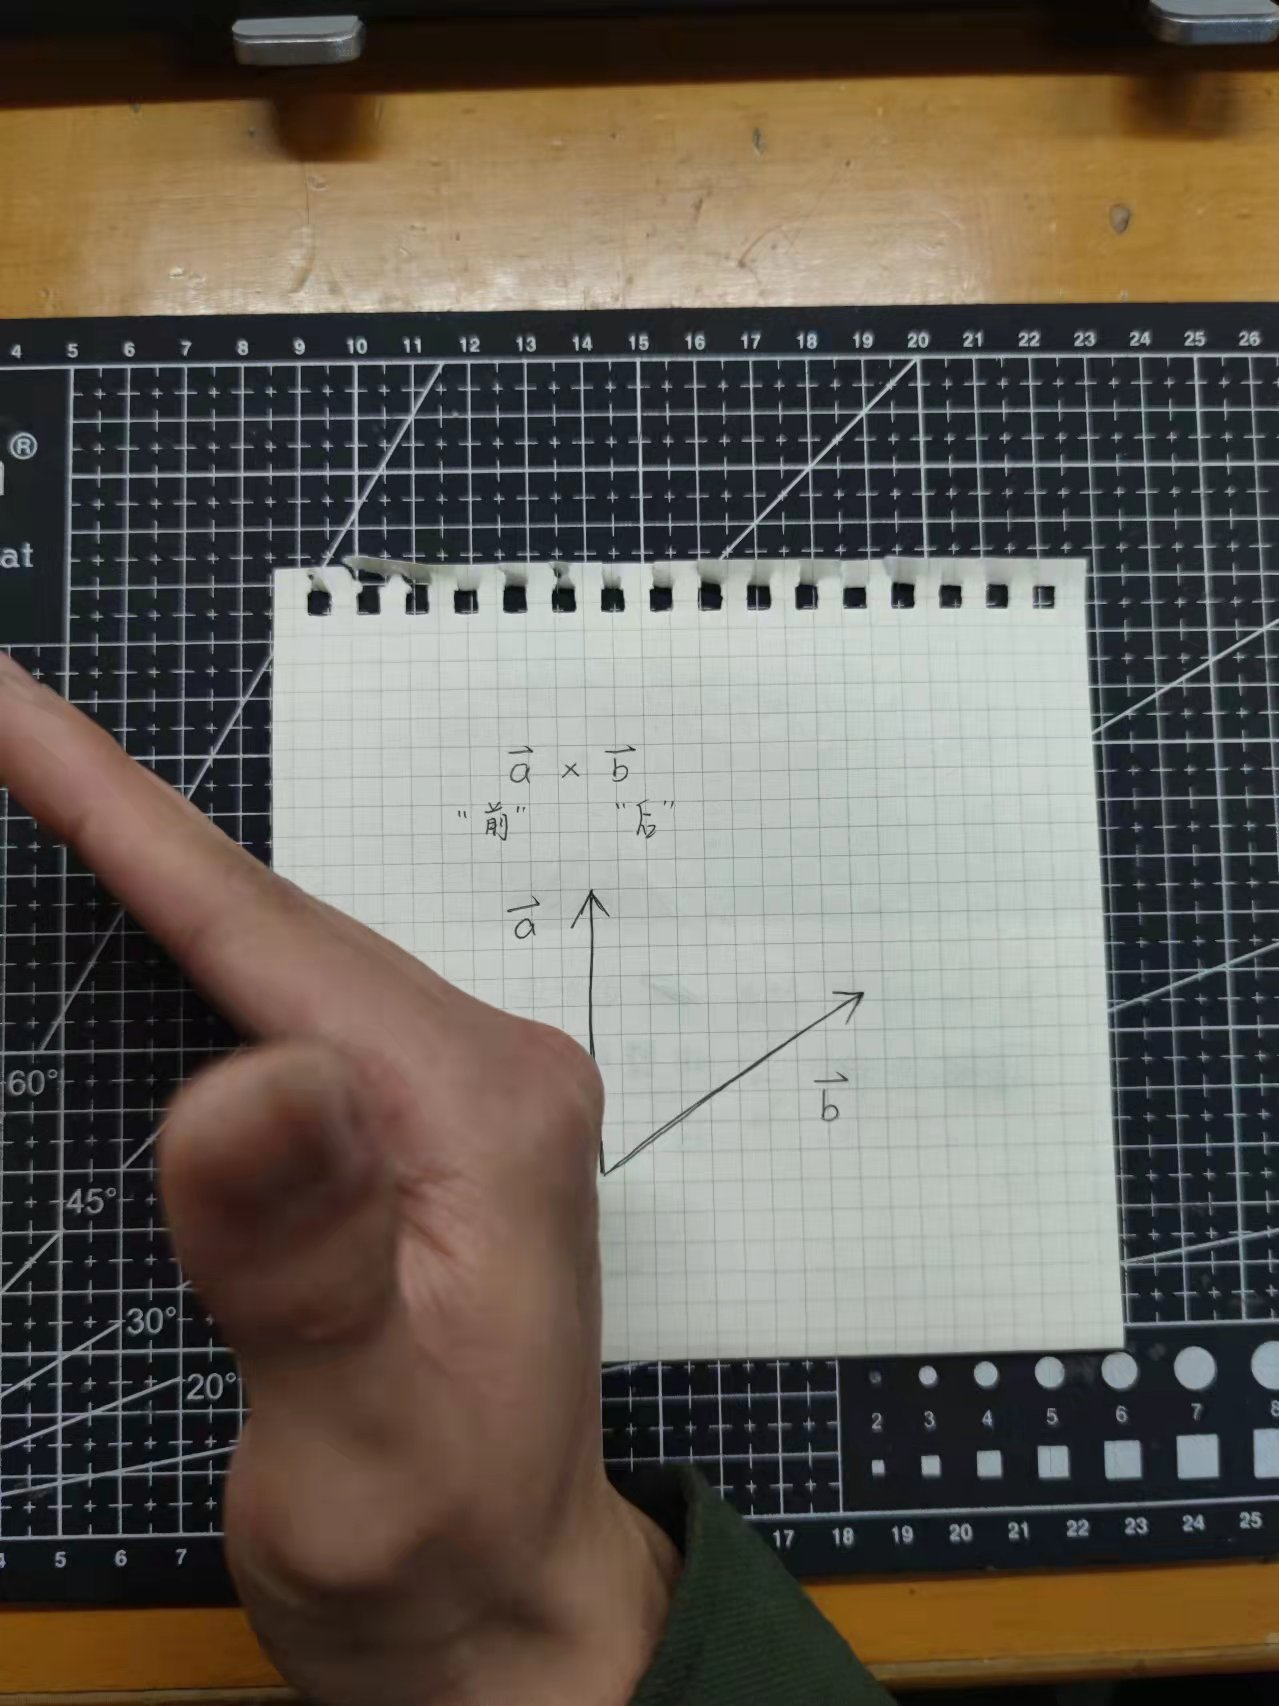 4 5 6 7 8 9 10 11 12 13 14 15 16 17 18 19 20 21 22 23 24 25 26
®
at
a⃗ × b⃗
"前" "后"
a⃗
b⃗
60°
45°
30°
20°
2 3 4 5 6 7 8
4 5 6 7 17 18 19 20 21 22 23 24 25